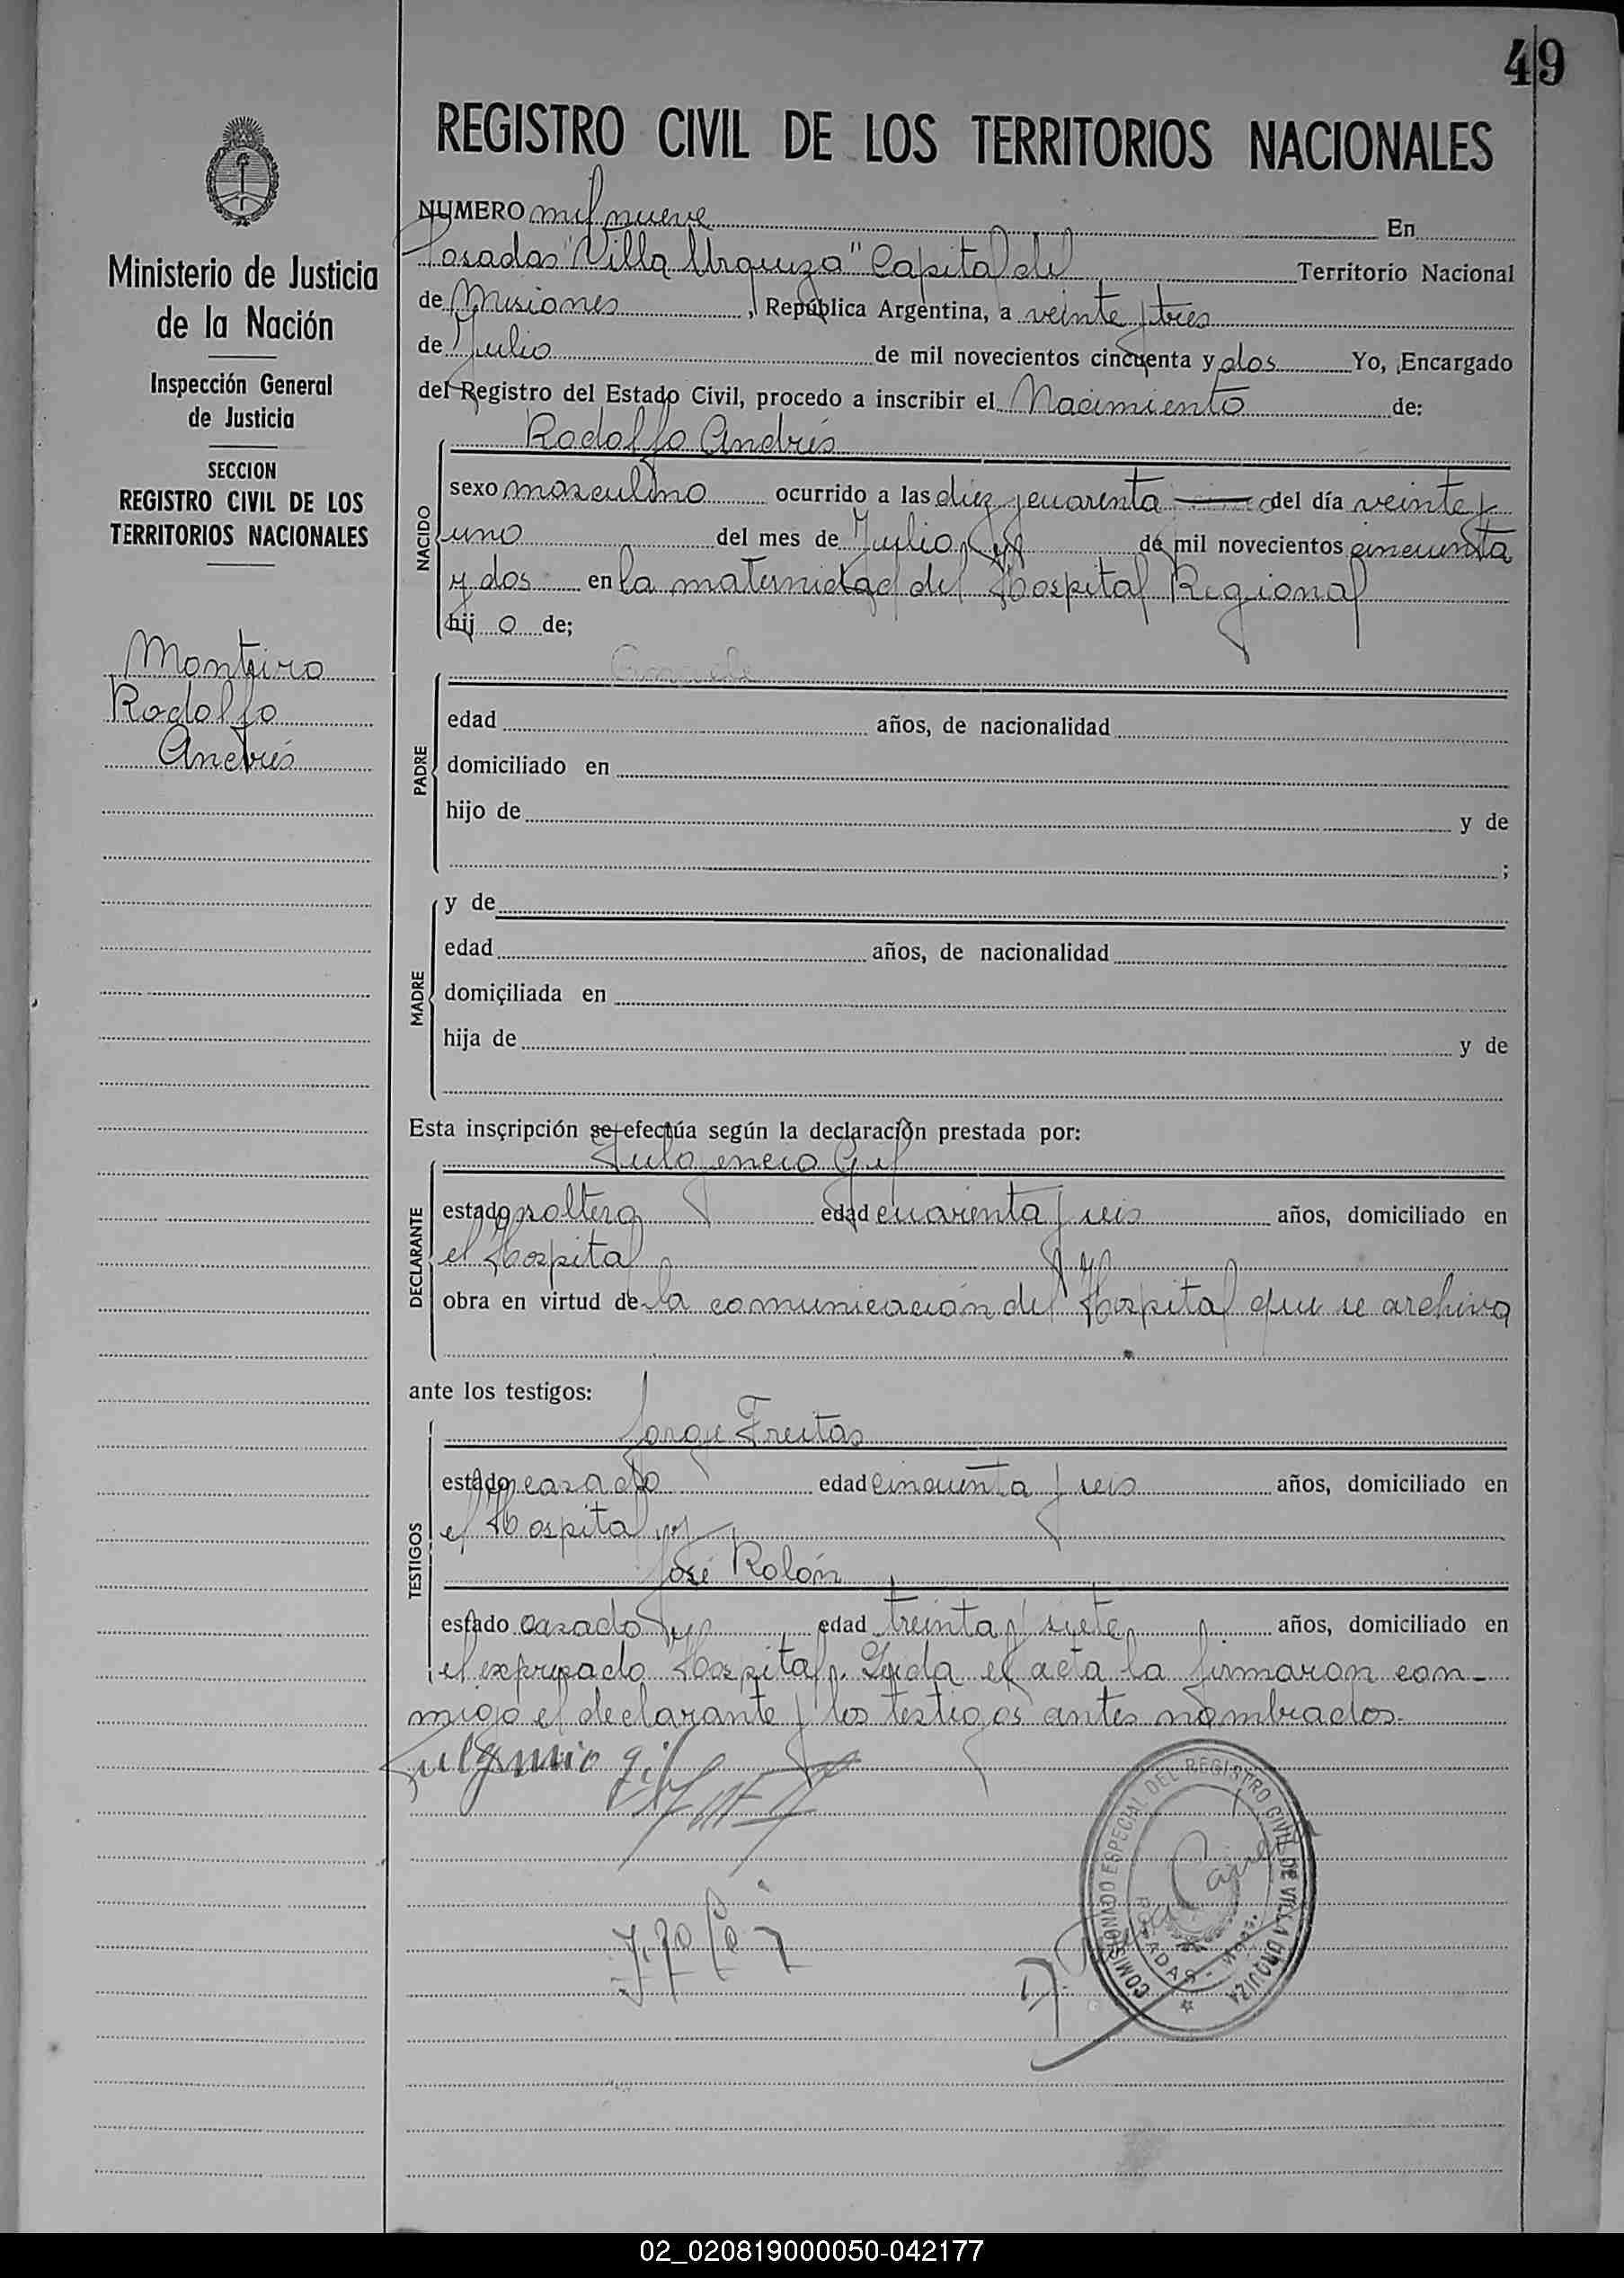 49
REGISTRO CIVIL DE LOS TERRITORIOS NACIONALES
Ministerio de Justicia
de la Nación
Inspección General
de Justicia
SECCION
REGISTRO CIVIL DE LOS
TERRITORIOS NACIONALES
Monteiro
Rodolfo
Andrés
NUMERO mil nueve En
Posadas "Villa Urquiza" Capital del Territorio Nacional
de Misiones, República Argentina, a veinte y tres
de Julio de mil novecientos cincuenta y dos Yo, Encargado
del Registro del Estado Civil, procedo a inscribir el Nacimiento de:
NACIDO
Rodolfo Andrés
sexo masculino ocurrido a las diez y cuarenta del día veinte y
uno del mes de Julio de mil novecientos cincuenta
y dos en la maternidad del Hospital Regional
hij o de;
PADRE
edad años, de nacionalidad
domiciliado en
hijo de y de
;
MADRE
y de
edad años, de nacionalidad
domiciliada en
hija de y de
Esta inscripción se efectúa según la declaración prestada por:
DECLARANTE
Fulgencio Gil
estado soltero edad cuarenta y seis años, domiciliado en
el Hospital
obra en virtud de la comunicación del Hospital que se archiva
ante los testigos:
TESTIGOS
Jorge Freitas
estado casado edad cincuenta y seis años, domiciliado en
el Hospital y
José Rolón
estado casado edad treinta y siete años, domiciliado en
el expresado Hospital. Leída el acta la firmaron con-
migo el declarante y los testigos antes nombrados.
Fulgencio gil
COMISIONADO ESPECIAL DEL REGISTRO CIVIL DE VILLA URQUIZA
POSADAS - Mnes.
02_020819000050-042177